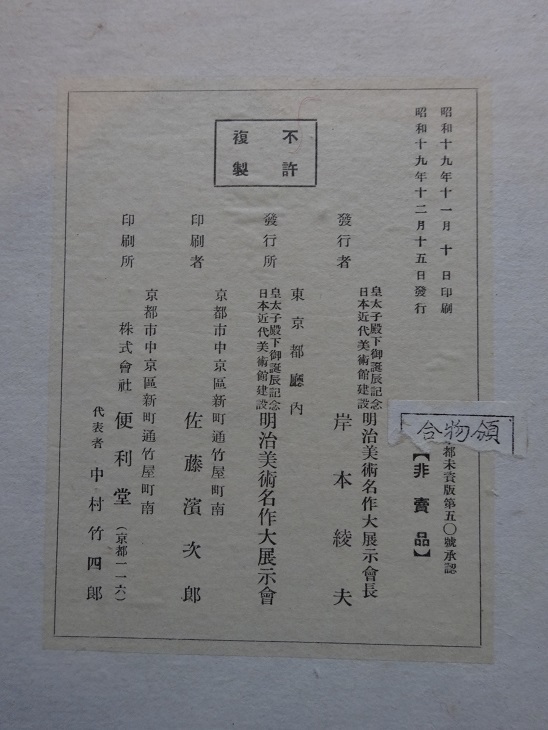 昭和十九年十一月十日印刷
昭和十九年十二月十五日發行
不許
複製
都未賣版第五〇號承認
【非賣品】
合物領
發行者
皇太子殿下御誕辰記念
日本近代美術館建設
明治美術名作大展示會長
岸本綾夫
東京都廳內
發行所
皇太子殿下御誕辰記念
日本近代美術館建設
明治美術名作大展示會
京都市中京區新町通竹屋町南
印刷者
佐藤濱次郎
京都市中京區新町通竹屋町南
印刷所
株式會社 便利堂
(京都一一六)
代表者 中村竹四郎